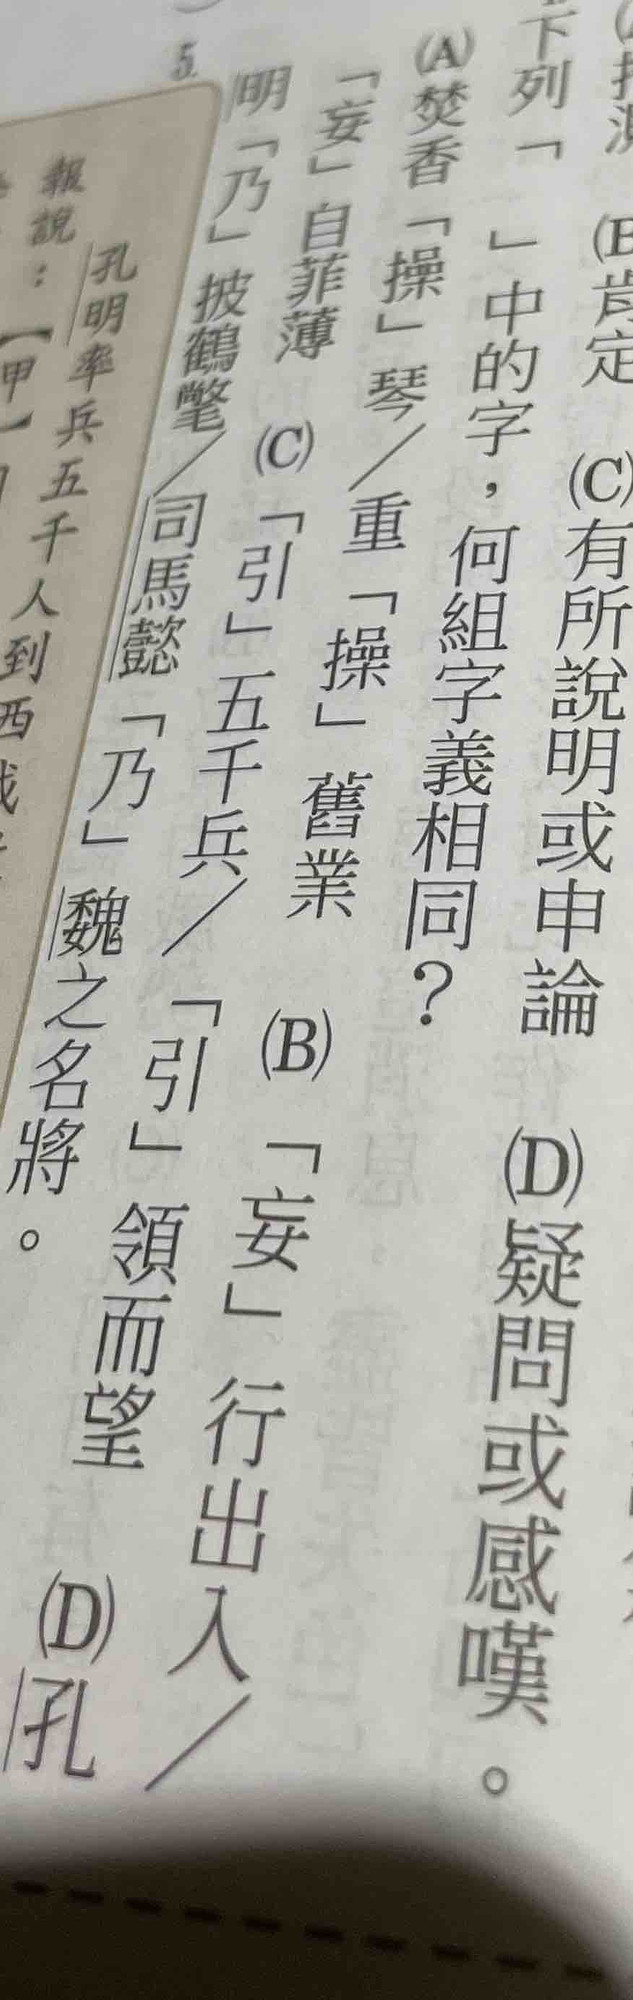 (B)肯定 (C)有所說明或申論 (D)疑問或感嘆。
下列「 」中的字，何組字義相同？
(A)焚香「操」琴／重「操」舊業 (B)「妄」行出入／
「妄」自菲薄 (C)「引」五千兵／「引」領而望 (D)孔
明「乃」披鶴氅／司馬懿「乃」魏之名將。
5.
孔明率兵五千人到西
報說：【甲】